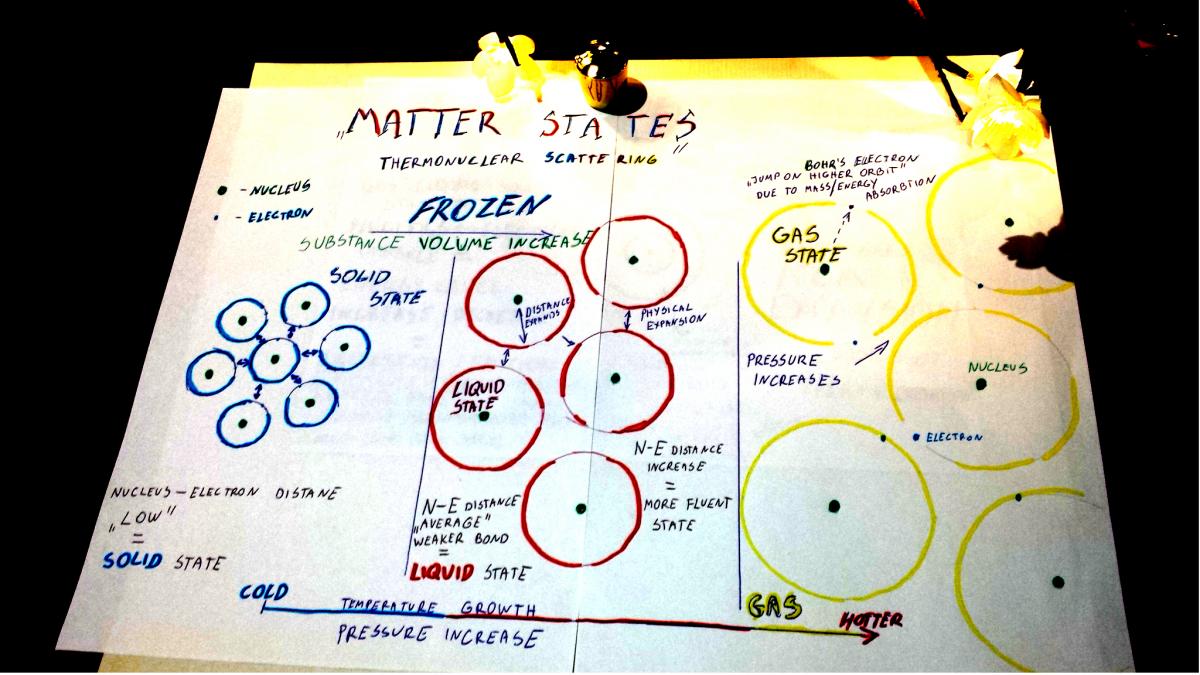 „MATTER STATES"
THERMONUCLEAR SCATTERING
- NUCLEUS
- ELECTRON
FROZEN
SUBSTANCE VOLUME INCREASE
SOLID
STATE
DISTANCE
EXPANDS
PHYSICAL
EXPANSION
LIQUID
STATE
BOHR'S ELECTRON
„JUMP ON HIGHER ORBIT"
DUE TO MASS/ENERGY
ABSORBTION
GAS
STATE
PRESSURE
INCREASES
NUCLEUS
ELECTRON
NUCLEUS-ELECTRON DISTANE
„LOW"
=
SOLID STATE
N-E DISTANCE
„AVERAGE"
WEAKER BOND
=
LIQUID STATE
N-E DISTANCE
INCREASE
=
MORE FLUENT
STATE
COLD
TEMPERATURE GROWTH
PRESSURE INCREASE
GAS
HOTTER